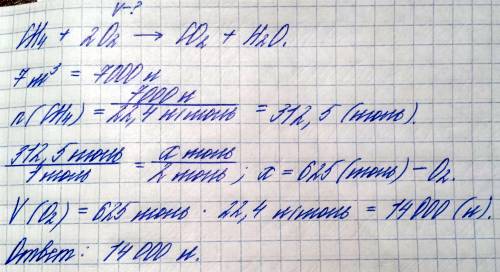 V-?
CH4 + 2O2 → CO2 + H2O.
7 m³ = 7000 л
n(CH4) = 7000 л / 22,4 л/моль = 312,5 (моль).
312,5 моль / 1 моль = x моль / 2 моль ; x = 625 (моль) - O2.
V (O2) = 625 моль · 22,4 л/моль = 14 000 (л).
Ответ: 14 000 л.